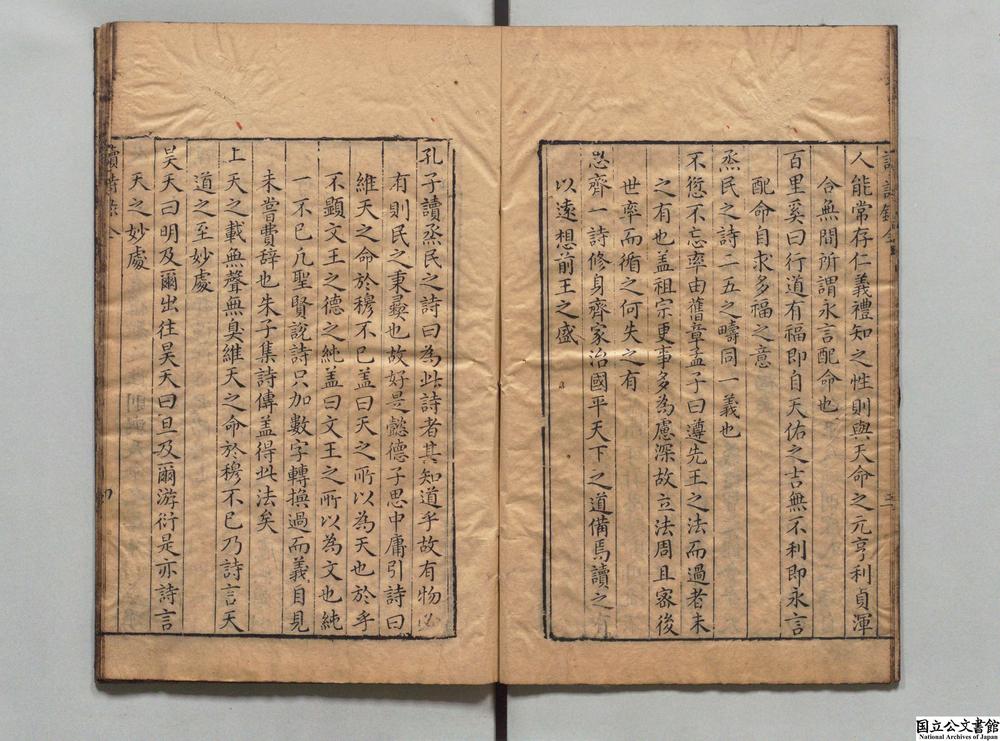 人能常存仁義禮知之性則與天命之元亨利貞渾
合無間所謂永言配命也
百里奚曰行道有福即自天佑之吉無不利即永言
配命自求多福之意
烝民之詩二五之疇同一義也
不愆不忘率由舊章孟子曰遵先王之法而過者未
之有也盖祖宗更事多為慮深故立法周且密後
世率而循之何失之有
思齊一詩修身齊家治國平天下之道備焉讀之
以遠想前王之盛
孔子讀烝民之詩曰為此詩者其知道乎故有物必
有則民之秉彛也故好是懿德子思中庸引詩曰
維天之命於穆不已盖曰天之所以為天也於乎
不顯文王之德之純盖曰文王之所以為文也純
一不已凡聖賢說詩只加數字轉換過而義自見
未嘗費辞也朱子集詩傳盖得此法矣
上天之載無聲無臭維天之命於穆不已乃詩言天
道之至妙處
昊天曰明及爾出往昊天曰旦及爾游衍是亦詩言
天之妙處
讀詩錄全
国立公文書館
National Archives of Japan